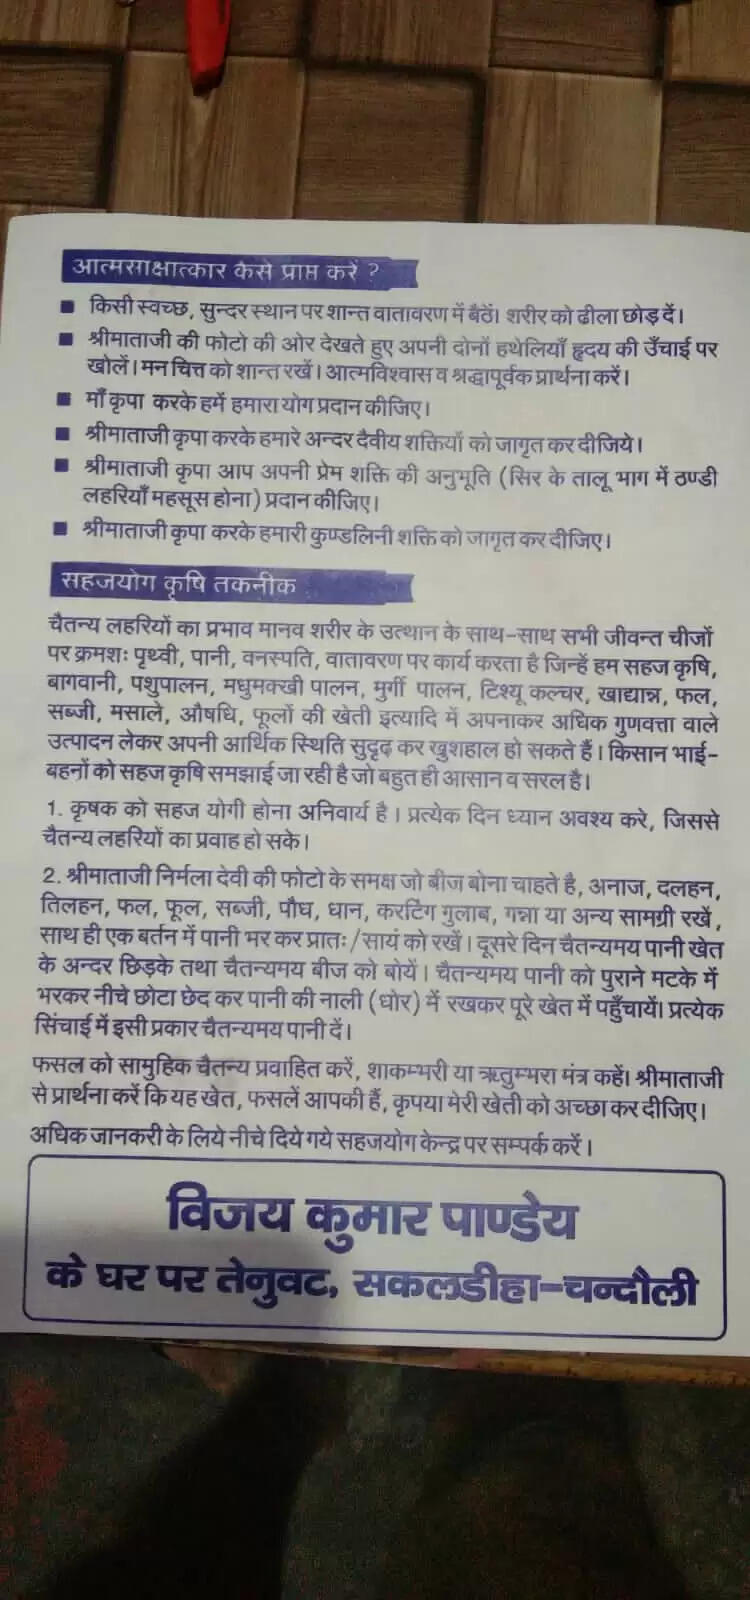 आत्मसाक्षात्कार कैसे प्राप्त करें ?
■ किसी स्वच्छ, सुन्दर स्थान पर शान्त वातावरण में बैठें। शरीर को ढीला छोड़ दें।
■ श्रीमाताजी की फोटो की ओर देखते हुए अपनी दोनों हथेलियाँ हृदय की उँचाई पर
खोलें। मन चित्त को शान्त रखें। आत्मविश्वास व श्रद्धापूर्वक प्रार्थना करें।
■ माँ कृपा करके हमें हमारा योग प्रदान कीजिए।
■ श्रीमाताजी कृपा करके हमारे अन्दर दैवीय शक्तियों को जागृत कर दीजिये।
■ श्रीमाताजी कृपा आप अपनी प्रेम शक्ति की अनुभूति (सिर के तालू भाग में ठण्डी
लहरियाँ महसूस होना) प्रदान कीजिए।
■ श्रीमाताजी कृपा करके हमारी कुण्डलिनी शक्ति को जागृत कर दीजिए।
सहजयोग कृषि तकनीक
चैतन्य लहरियों का प्रभाव मानव शरीर के उत्थान के साथ-साथ सभी जीवन्त चीजों
पर क्रमशः पृथ्वी, पानी, वनस्पति, वातावरण पर कार्य करता है जिन्हें हम सहज कृषि,
बागवानी, पशुपालन, मधुमक्खी पालन, मुर्गी पालन, टिश्यू कल्चर, खाद्यान्न, फल,
सब्जी, मसाले, औषधि, फूलों की खेती इत्यादि में अपनाकर अधिक गुणवत्ता वाले
उत्पादन लेकर अपनी आर्थिक स्थिति सुदृढ़ कर खुशहाल हो सकते हैं। किसान भाई-
बहनों को सहज कृषि समझाई जा रही है जो बहुत ही आसान व सरल है।
1. कृषक को सहज योगी होना अनिवार्य है। प्रत्येक दिन ध्यान अवश्य करे, जिससे
चैतन्य लहरियों का प्रवाह हो सके।
2. श्रीमाताजी निर्मला देवी की फोटो के समक्ष जो बीज बोना चाहते है, अनाज, दलहन,
तिलहन, फल, फूल, सब्जी, पौघ, धान, करटिंग गुलाब, गन्ना या अन्य सामग्री रखें,
साथ ही एक बर्तन में पानी भर कर प्रातः/सायं को रखें। दूसरे दिन चैतन्यमय पानी खेत
के अन्दर छिड़के तथा चैतन्यमय बीज को बोयें। चैतन्यमय पानी को पुराने मटके में
भरकर नीचे छोटा छेद कर पानी की नाली (धोर) में रखकर पूरे खेत में पहुँचायें। प्रत्येक
सिंचाई में इसी प्रकार चैतन्यमय पानी दें।
फसल को सामुहिक चैतन्य प्रवाहित करें, शाकम्भरी या ऋतुम्भरा मंत्र कहें। श्रीमाताजी
से प्रार्थना करें कि यह खेत, फसलें आपकी हैं, कृपया मेरी खेती को अच्छा कर दीजिए।
अधिक जानकरी के लिये नीचे दिये गये सहजयोग केन्द्र पर सम्पर्क करें।
विजय कुमार पाण्डेय
के घर पर तेनुवट, सकलडीहा-चन्दौली